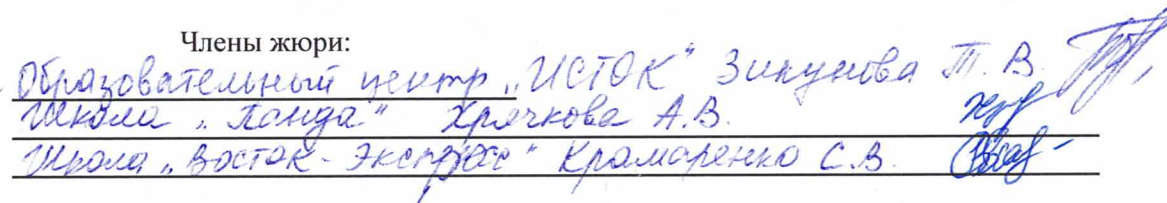 Члены жюри:
Образовательный центр "ИСТОК" Зипунова Т.В.
Школа "Панда" Хрячкова А.В.
Школа "Восток-экспресс" Крамаренко С.В.